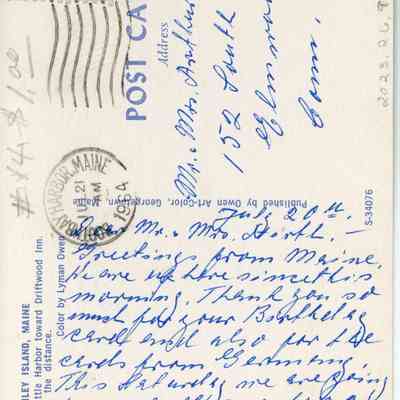 July 20th.
Dear Mr. & Mrs. Hirth. –
Greetings from Maine.
we are up here since this
morning. Thank you so
much for your Birthday
card and also for the
cards from Germany.
This Saturday we are going
POST CA
Address
Mr. & Mrs. Arthur
152 South
Elmwo
Conn.
BOOTHBAY HARBOR, MAINE
JUL 21
AM
1964
Published by Owen Art-Color, Georgetown, Maine
S-34076
LEY ISLAND, MAINE
ttle Harbor toward Driftwood Inn.
the distance.
Color by Lyman Owen
#44 $1.00
2023.26.9